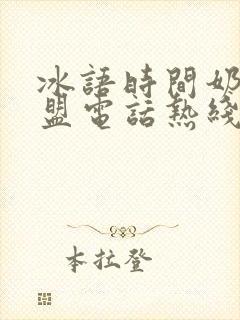 冰語時間奶
盟電話熱綫
本拉登